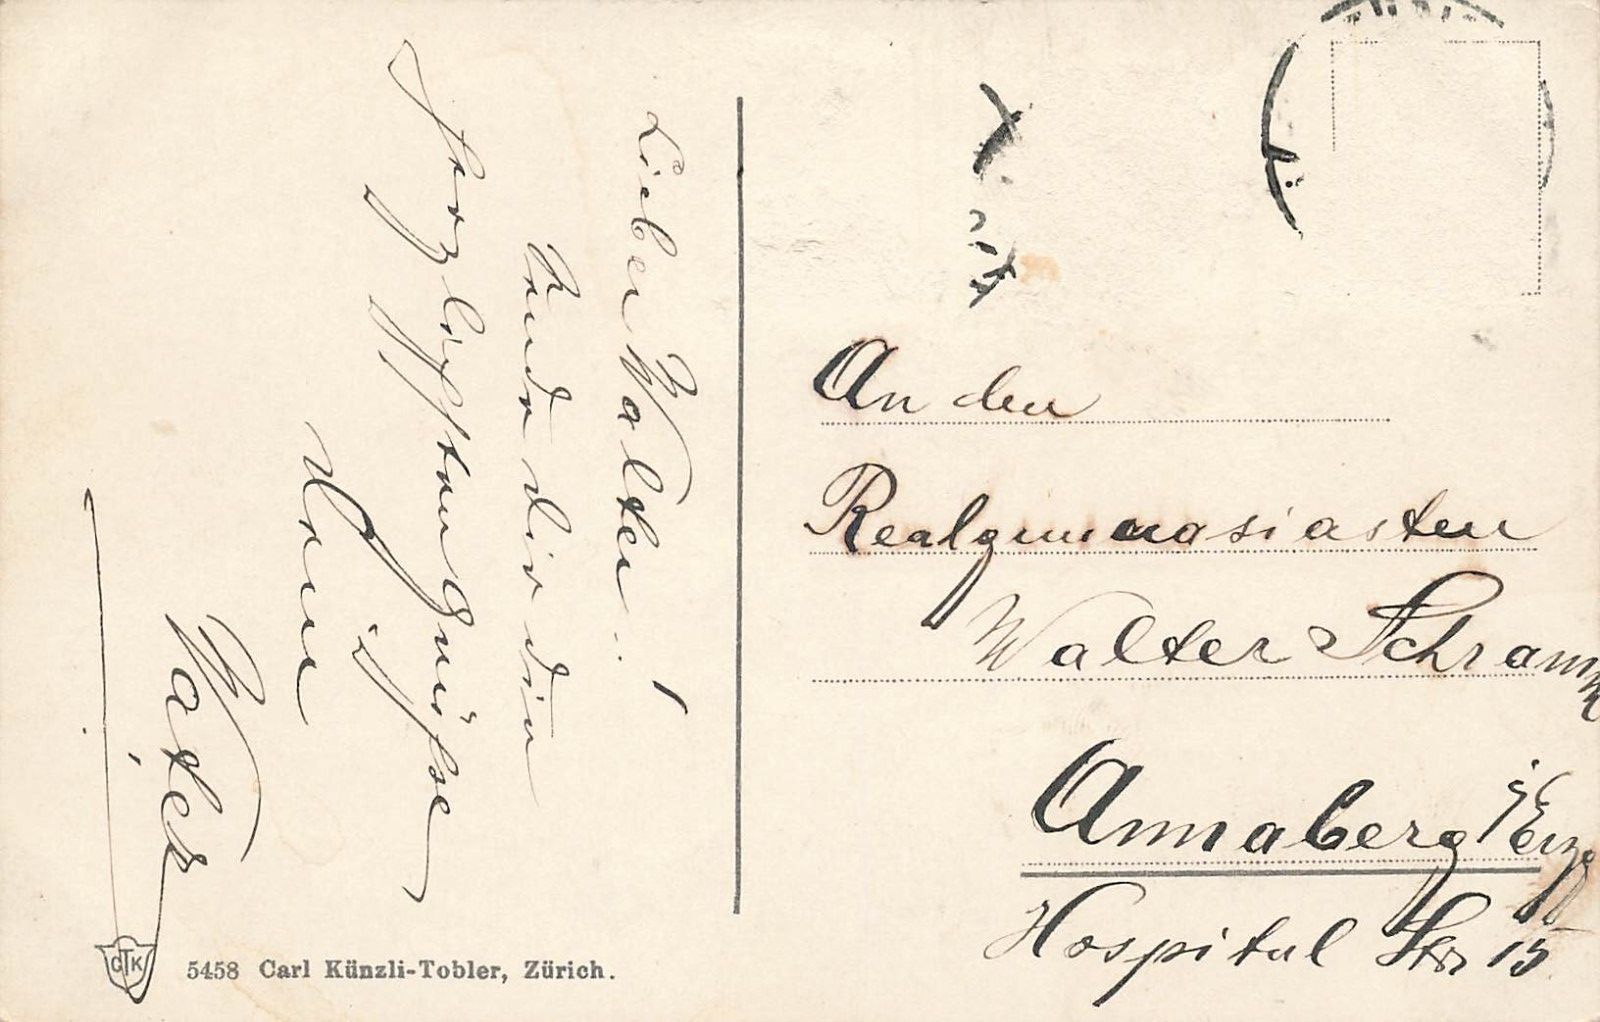 Lieber Walter!
Sende dir die
herzlichsten Grüsse
Dein
Vater
An den
Realgymnasiasten
Walter Schramm
Annaberg i/Erzg
Hospital Str 15
CTK
5458 Carl Künzli-Tobler, Zürich.